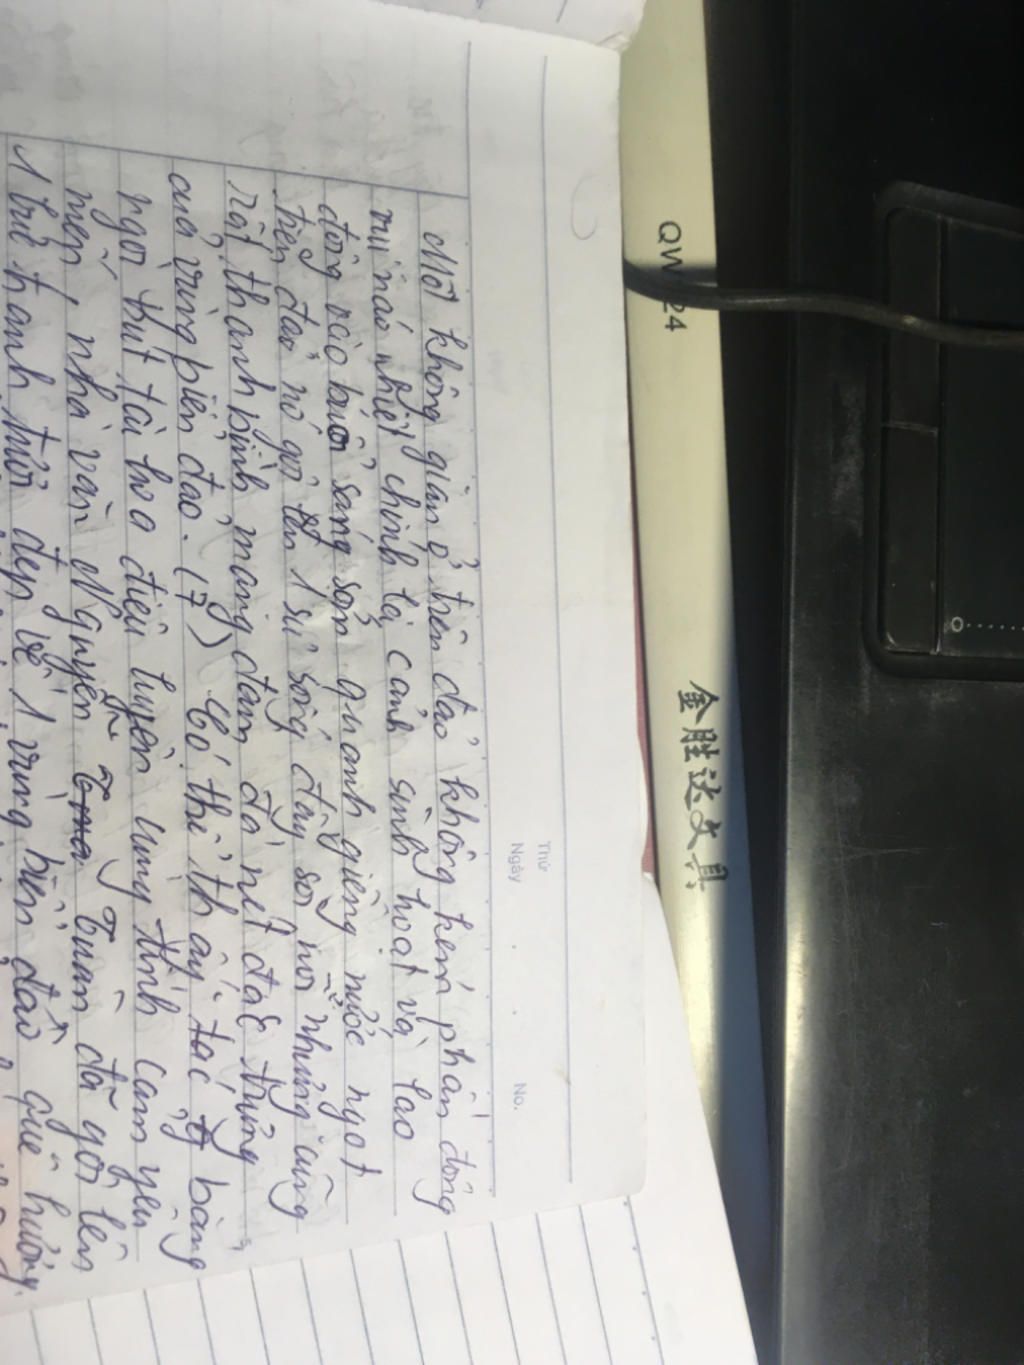 QW 24
金胜达文具
Thứ
Ngày
No.
Một không gian ở trên đảo không kém phần đông
vui náo nhiệt chính là cảnh sinh hoạt và lao
động vào buổi sáng sớm quanh giếng nước ngọt
trên đảo nó gợi lên 1 sự sống đầy sôi nổi nhưng cũng
rất thanh bình mang đậm đà nét đặc trưng
của vùng biển đảo. (7) Có thể thấy tác g bằng
ngòi bút tài hoa điêu luyện cùng tình cảm yêu
mến, nhà văn Nguyễn Tuân đã gợi lên
1 bức tranh tươi đẹp về 1 vùng biển đảo quê hương.